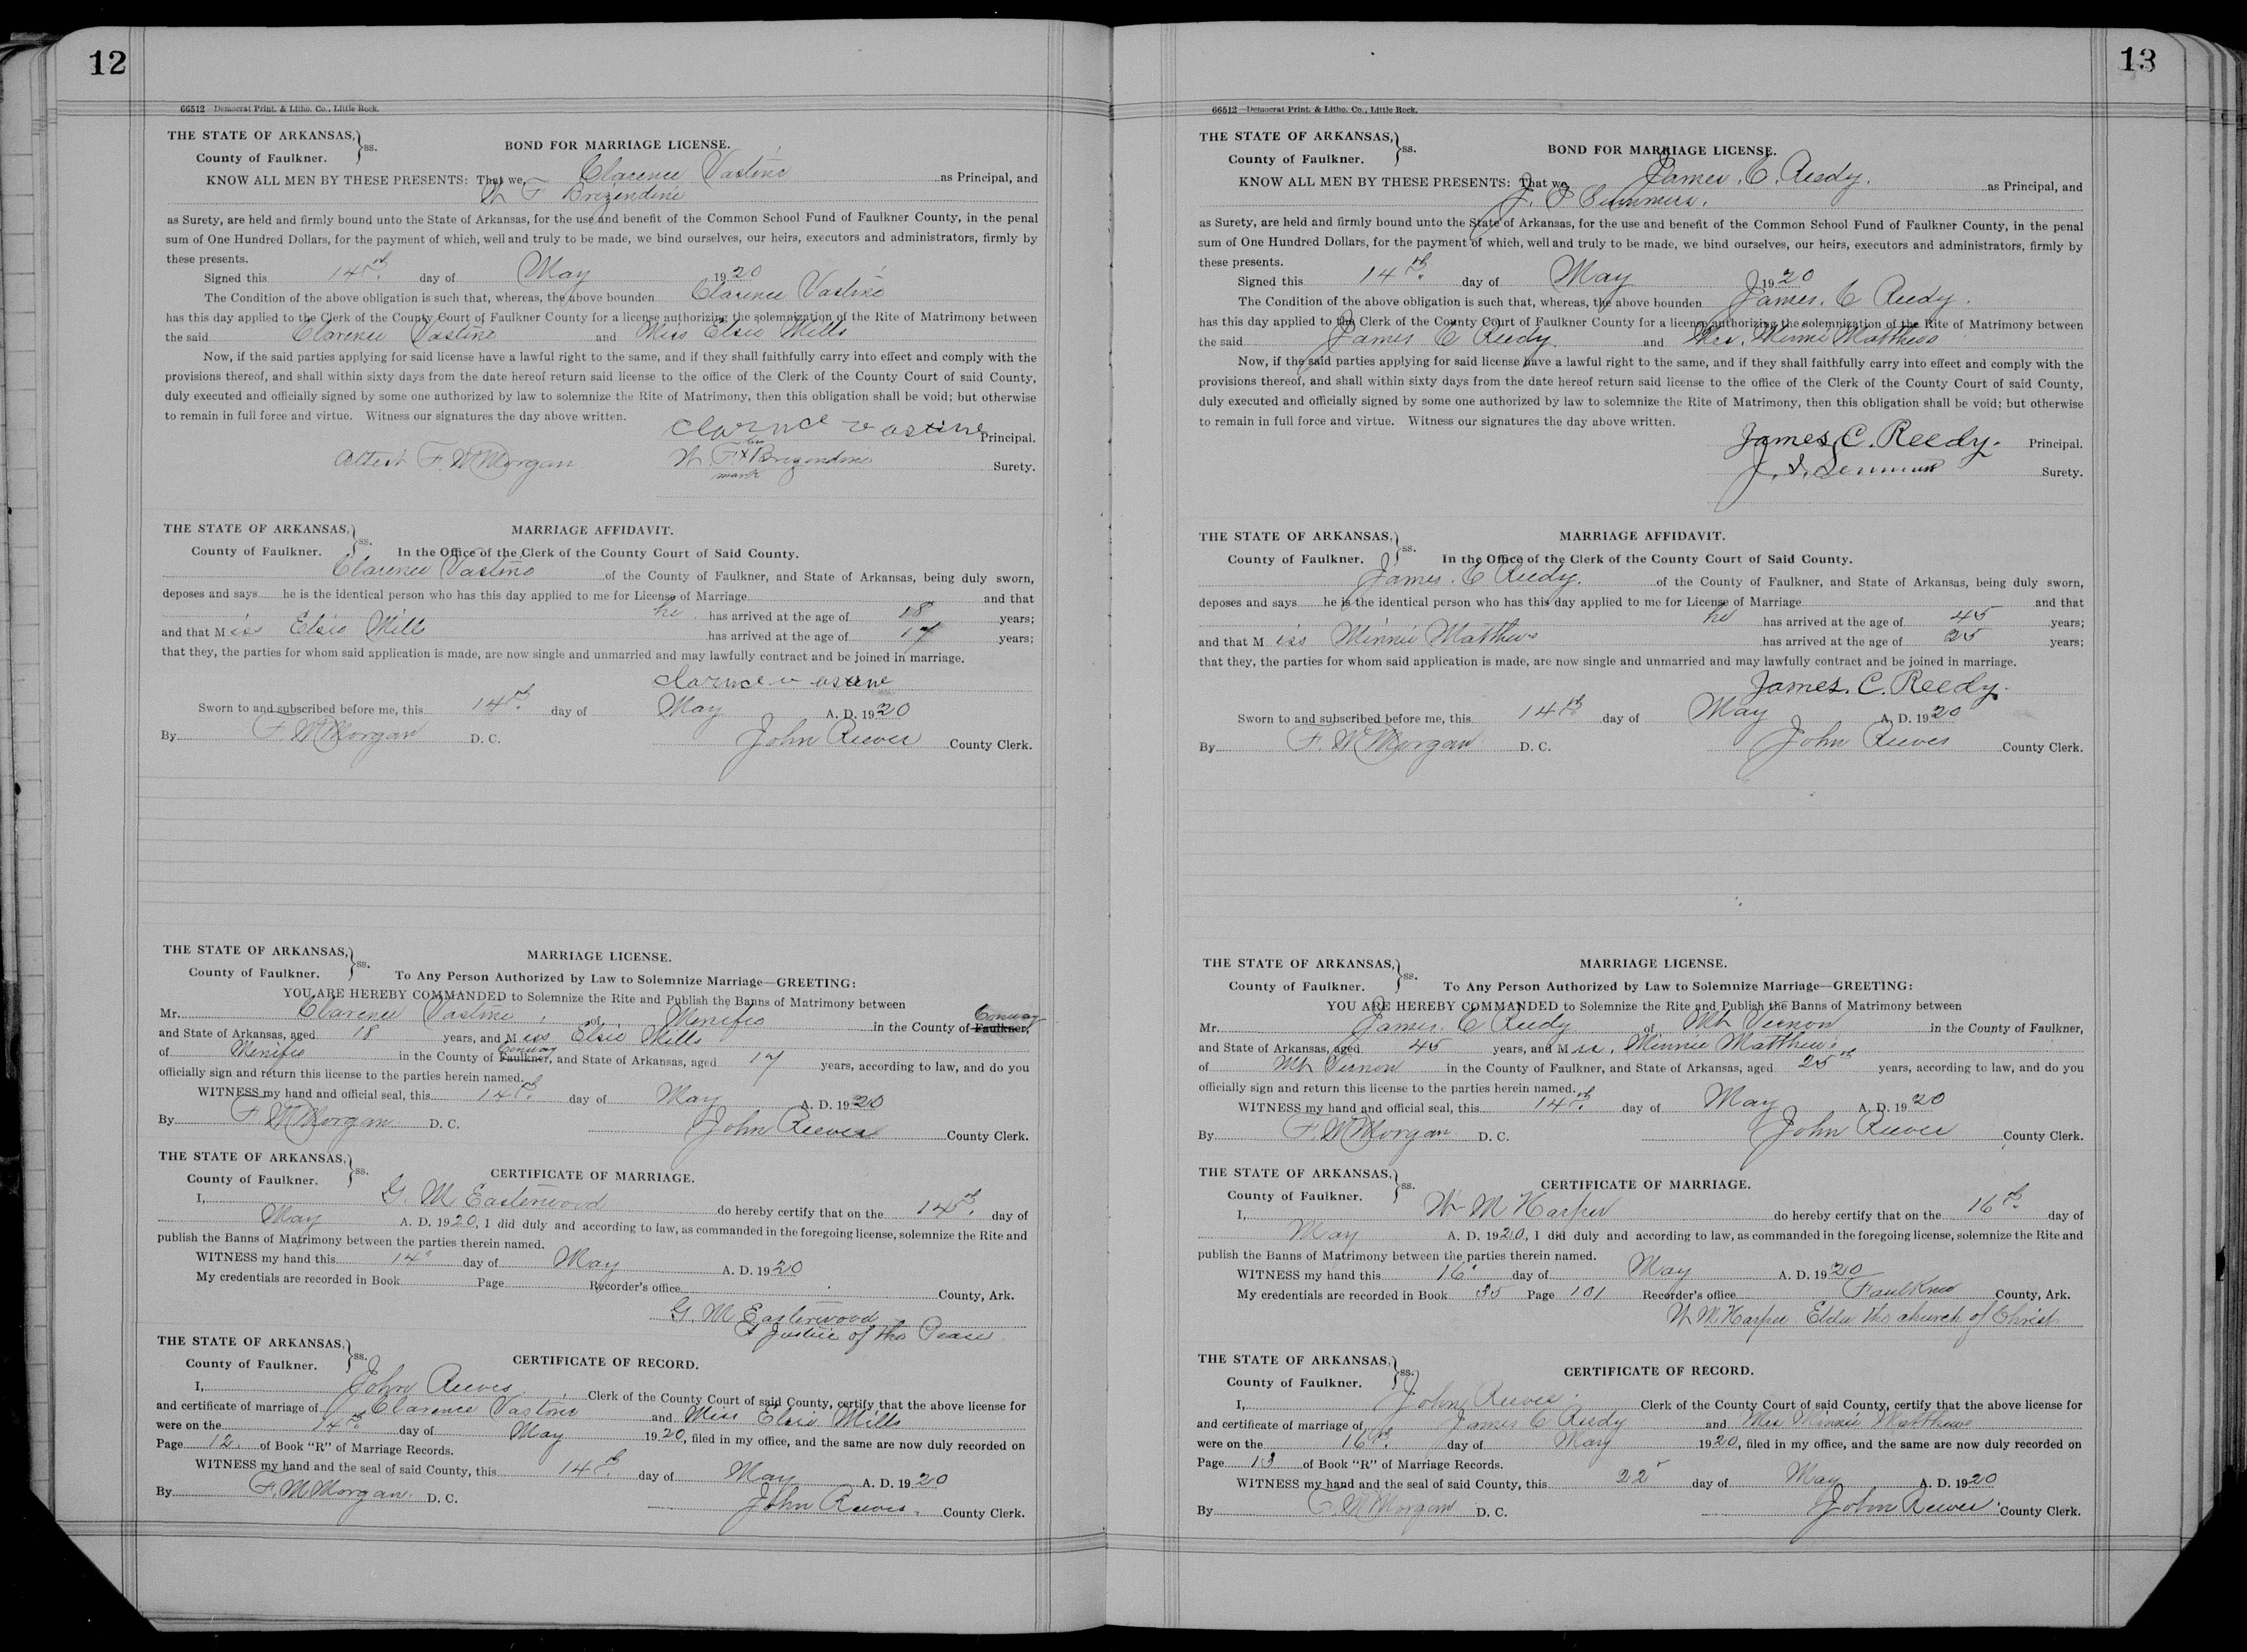 12
66512—Democrat Print. & Litho. Co., Little Rock.
THE STATE OF ARKANSAS, ss.
County of Faulkner.
BOND FOR MARRIAGE LICENSE.
KNOW ALL MEN BY THESE PRESENTS: That we, Clarence Vastine as Principal, and
W F Brizendine
as Surety, are held and firmly bound unto the State of Arkansas, for the use and benefit of the Common School Fund of Faulkner County, in the penal
sum of One Hundred Dollars, for the payment of which, well and truly to be made, we bind ourselves, our heirs, executors and administrators, firmly by
these presents.
Signed this 14th day of May 1920
The Condition of the above obligation is such that, whereas, the above bounden Clarence Vastine
has this day applied to the Clerk of the County Court of Faulkner County for a license authorizing the solemnization of the Rite of Matrimony between
the said Clarence Vastine and Miss Elsie Mills
Now, if the said parties applying for said license have a lawful right to the same, and if they shall faithfully carry into effect and comply with the
provisions thereof, and shall within sixty days from the date hereof return said license to the office of the Clerk of the County Court of said County,
duly executed and officially signed by some one authorized by law to solemnize the Rite of Matrimony, then this obligation shall be void; but otherwise
to remain in full force and virtue. Witness our signatures the day above written.
Clarnce vastine Principal.
Attest F. W Morgan W. F x Brizendine Surety.
mark
THE STATE OF ARKANSAS, ss.
County of Faulkner.
MARRIAGE AFFIDAVIT.
In the Office of the Clerk of the County Court of Said County.
Clarence Vastine of the County of Faulkner, and State of Arkansas, being duly sworn,
deposes and says he is the identical person who has this day applied to me for License of Marriage and that
he has arrived at the age of 18 years;
and that Miss Elsie Mills has arrived at the age of 17 years;
that they, the parties for whom said application is made, are now single and unmarried and may lawfully contract and be joined in marriage.
Clarnce vastine
Sworn to and subscribed before me, this 14th day of May A. D. 1920
By F. W Morgan D. C. John Reeves County Clerk.
THE STATE OF ARKANSAS, ss.
County of Faulkner.
MARRIAGE LICENSE.
To Any Person Authorized by Law to Solemnize Marriage—GREETING:
YOU ARE HEREBY COMMANDED to Solemnize the Rite and Publish the Banns of Matrimony between
Mr. Clarence Vastine of Menifee in the County of Faulkner, Conway
and State of Arkansas, aged 18 years, and Miss Elsie Mills
of Menifee in the County of Faulkner, Conway and State of Arkansas, aged 17 years, according to law, and do you
officially sign and return this license to the parties herein named.
WITNESS my hand and official seal, this 14th day of May A. D. 1920
By F. W Morgan D. C. John Reeves County Clerk.
THE STATE OF ARKANSAS, ss.
County of Faulkner.
CERTIFICATE OF MARRIAGE.
I, G. M Easterwood do hereby certify that on the 14th day of
May A. D. 1920, I did duly and according to law, as commanded in the foregoing license, solemnize the Rite and
publish the Banns of Matrimony between the parties therein named.
WITNESS my hand this 14 day of May A. D. 1920
My credentials are recorded in Book Page Recorder's office County, Ark.
G. M Easterwood
Justice of the Peace
THE STATE OF ARKANSAS, ss.
County of Faulkner.
CERTIFICATE OF RECORD.
I, John Reeves, Clerk of the County Court of said County, certify that the above license for
and certificate of marriage of Clarence Vastine and Miss Elsie Mills
were on the 14th day of May 1920, filed in my office, and the same are now duly recorded on
Page 12 of Book "R" of Marriage Records.
WITNESS my hand and the seal of said County, this 14th day of May A. D. 1920
By F. W Morgan D. C. John Reeves County Clerk.
13
66512—Democrat Print. & Litho. Co., Little Rock.
THE STATE OF ARKANSAS, ss.
County of Faulkner.
BOND FOR MARRIAGE LICENSE.
KNOW ALL MEN BY THESE PRESENTS: That we, James. C. Reedy. as Principal, and
J. S Summers.
as Surety, are held and firmly bound unto the State of Arkansas, for the use and benefit of the Common School Fund of Faulkner County, in the penal
sum of One Hundred Dollars, for the payment of which, well and truly to be made, we bind ourselves, our heirs, executors and administrators, firmly by
these presents.
Signed this 14th day of May 1920
The Condition of the above obligation is such that, whereas, the above bounden James. C Reedy.
has this day applied to the Clerk of the County Court of Faulkner County for a license authorizing the solemnization of the Rite of Matrimony between
the said James C Reedy. and Mrs. Minnie Matthews
Now, if the said parties applying for said license have a lawful right to the same, and if they shall faithfully carry into effect and comply with the
provisions thereof, and shall within sixty days from the date hereof return said license to the office of the Clerk of the County Court of said County,
duly executed and officially signed by some one authorized by law to solemnize the Rite of Matrimony, then this obligation shall be void; but otherwise
to remain in full force and virtue. Witness our signatures the day above written.
James C. Reedy. Principal.
J. S. Surety.
THE STATE OF ARKANSAS, ss.
County of Faulkner.
MARRIAGE AFFIDAVIT.
In the Office of the Clerk of the County Court of Said County.
James. C Reedy. of the County of Faulkner, and State of Arkansas, being duly sworn,
deposes and says he is the identical person who has this day applied to me for License of Marriage and that
he has arrived at the age of 45 years;
and that Miss Minnie Matthews has arrived at the age of 25 years;
that they, the parties for whom said application is made, are now single and unmarried and may lawfully contract and be joined in marriage.
James. C. Reedy.
Sworn to and subscribed before me, this 14th day of May A. D. 1920
By F. W Morgan D. C. John Reeves County Clerk.
THE STATE OF ARKANSAS, ss.
County of Faulkner.
MARRIAGE LICENSE.
To Any Person Authorized by Law to Solemnize Marriage—GREETING:
YOU ARE HEREBY COMMANDED to Solemnize the Rite and Publish the Banns of Matrimony between
Mr. James. C Reedy of Mt Vernon in the County of Faulkner,
and State of Arkansas, aged 45 years, and Mrs. Minnie Matthews
of Mt Vernon in the County of Faulkner, and State of Arkansas, aged 25 years, according to law, and do you
officially sign and return this license to the parties herein named.
WITNESS my hand and official seal, this 14th day of May A. D. 1920
By F. W Morgan D. C. John Reeves County Clerk.
THE STATE OF ARKANSAS, ss.
County of Faulkner.
CERTIFICATE OF MARRIAGE.
I, W M Harper do hereby certify that on the 16th day of
May A. D. 1920, I did duly and according to law, as commanded in the foregoing license, solemnize the Rite and
publish the Banns of Matrimony between the parties therein named.
WITNESS my hand this 16 day of May A. D. 1920
My credentials are recorded in Book 35 Page 101 Recorder's office Faulkner County, Ark.
W M Harper Elder the church of Christ
THE STATE OF ARKANSAS, ss.
County of Faulkner.
CERTIFICATE OF RECORD.
I, John Reeves. Clerk of the County Court of said County, certify that the above license for
and certificate of marriage of James C Reedy and Mrs Minnie Matthews
were on the 16th day of May 1920, filed in my office, and the same are now duly recorded on
Page 13 of Book "R" of Marriage Records.
WITNESS my hand and the seal of said County, this 22 day of May A. D. 1920
By F. W Morgan D. C. John Reeves County Clerk.